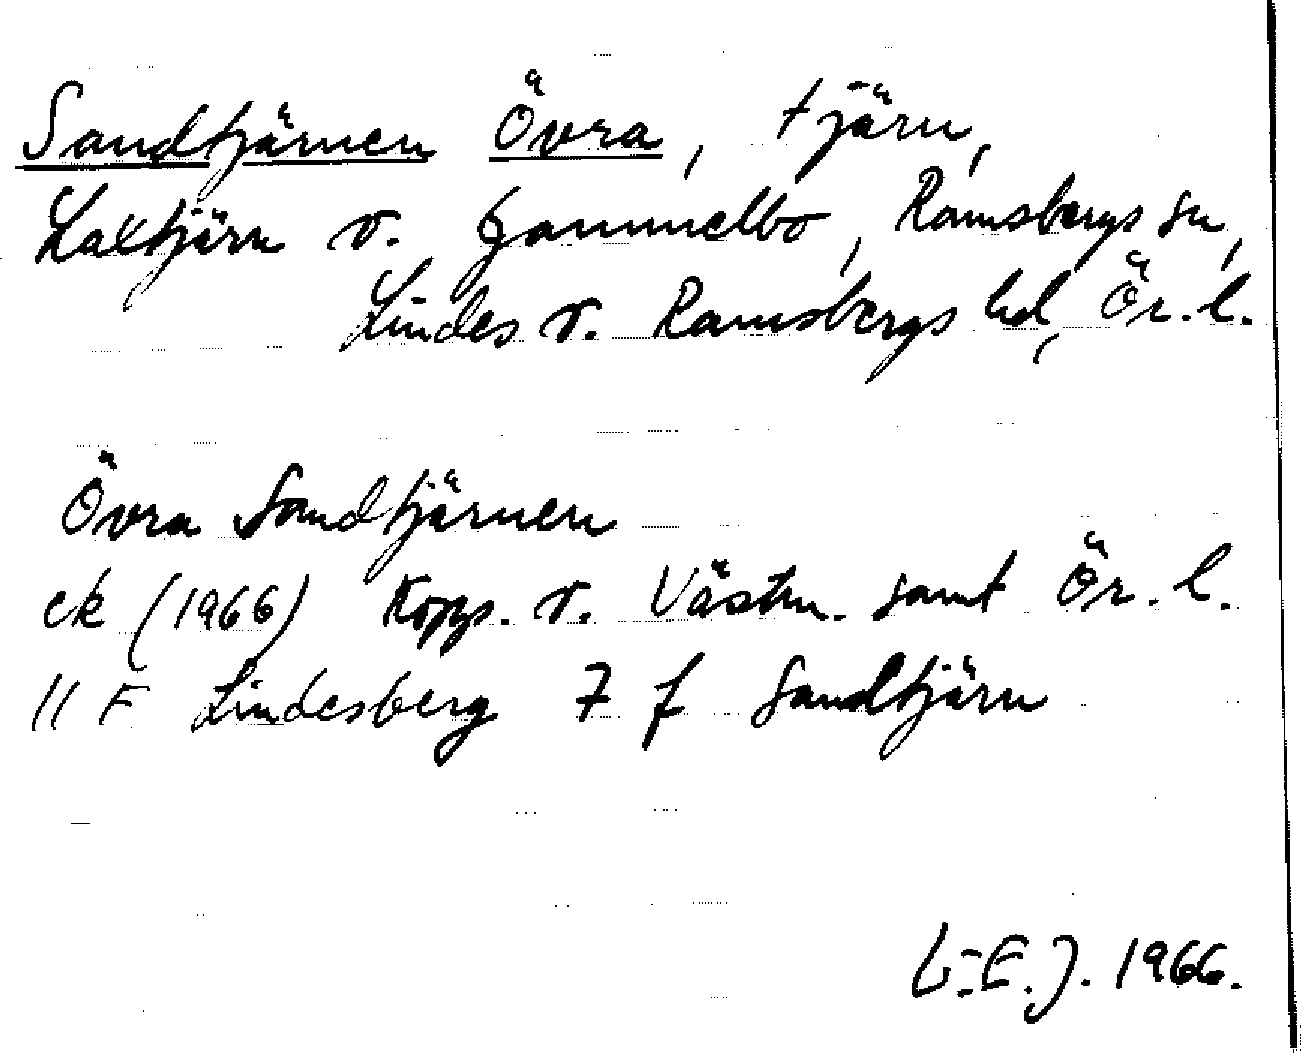 Sandtjärnen Övra, tjärn,
Laxtjärn o. Gammelbo, Ramsbergs sn,
Lindes o. Ramsbergs hd, Ör. l.
Övra Sandtjärnen
ek (1966) Kopp. o. Västm. samt Ör. l.
11 F Lindesberg 7 f Sandtjärn
L-E. J. 1966.